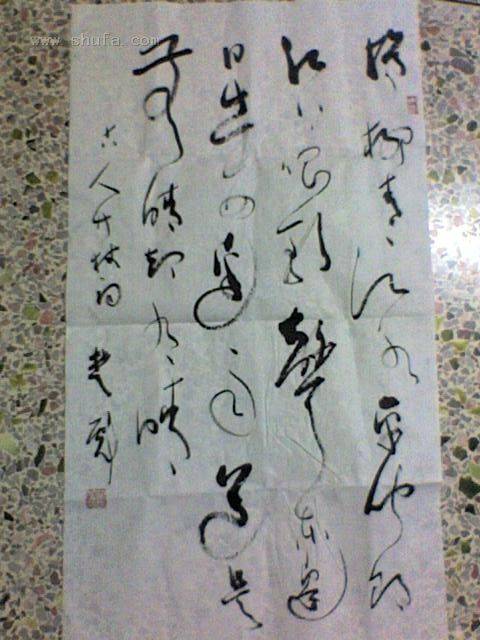 www.shufa.com
杨柳青、江水平闻郎
江上唱歌聲东邊
日出西边雨道是
无晴却有晴
古人竹枝词